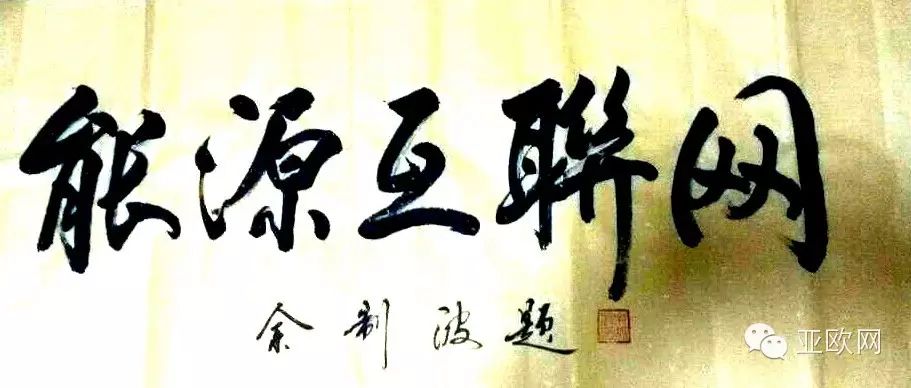 能源互聯网
余制波题
亚欧网